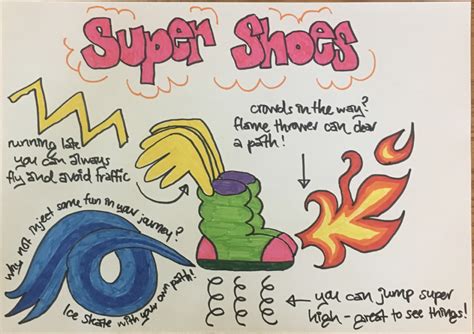 Super Shoes
running late
you can always
fly and avoid traffic
crowds in the way?
flame thrower can clear
a path!
why not inject some fun in your journey?
Ice skate with your own path!
you can jump super
high - great to see things!